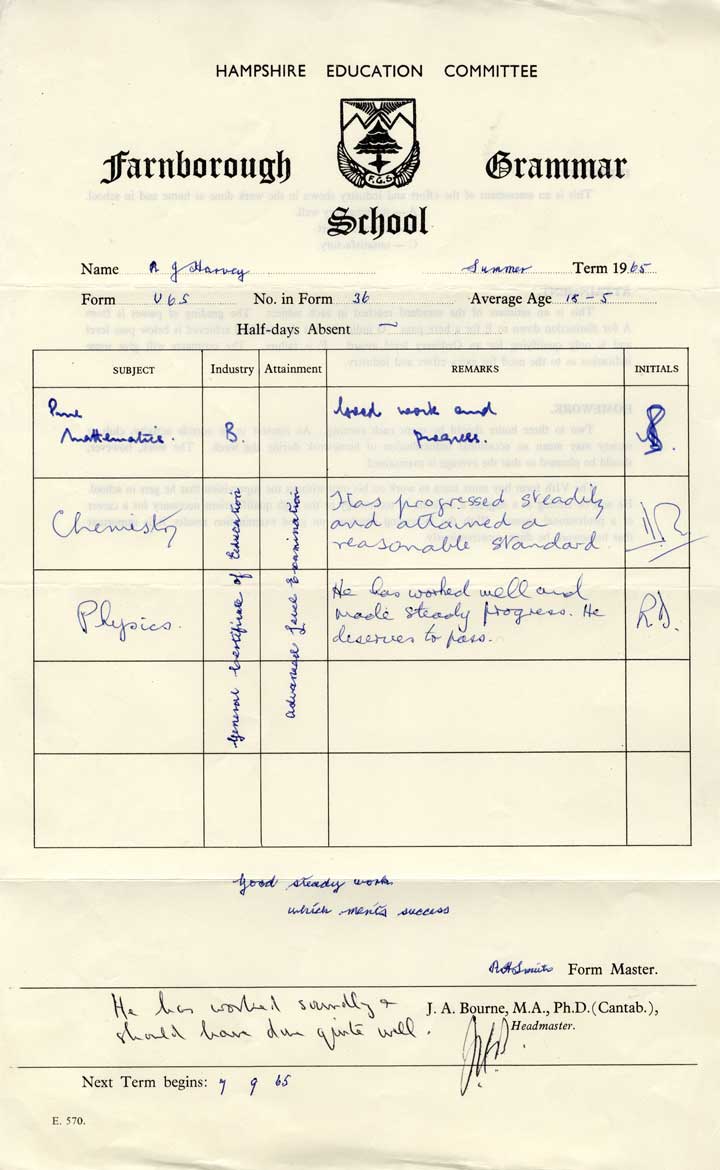 HAMPSHIRE EDUCATION COMMITTEE
F.G.S
Farnborough Grammar
School
Name R J Harvey Summer Term 1965
Form U6S No. in Form 36 Average Age 18-5
Half-days Absent —
SUBJECT Industry Attainment REMARKS INITIALS
Pure
Mathematics. B. Good work and
progress.
Chemistry Has progressed steadily
and attained a
reasonable standard.
Physics. He has worked well and
made steady progress. He
deserves to pass. R.D.
General Certificate of Education
Advanced Level Examination
Good steady work
which merits success
R H Smith Form Master.
He has worked soundly &
should have done quite well.
J. A. Bourne, M.A., Ph.D. (Cantab.),
Headmaster.
Next Term begins: 7 9 65
E. 570.